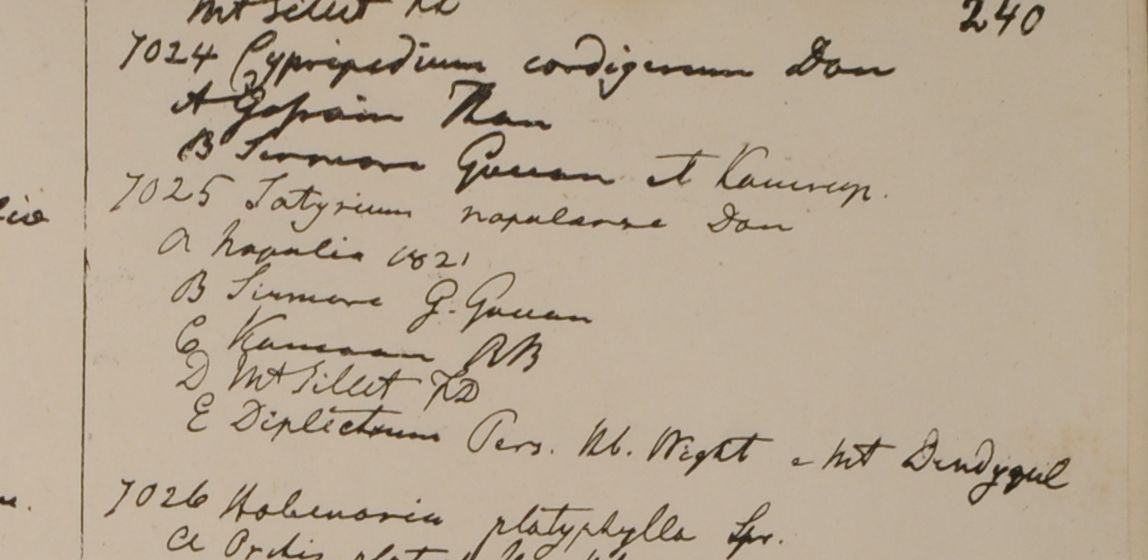 Mt Sillet FD
240
7024 Cypripedium cordigerum Don
A Gosain Than
B Sirmore Govan et Kamrup.
7025 Satyrium nepalense Don
a Napalia 1821
B Sirmore G. Govan
C Kamaon RB
D Mt Sillet FD
E Diplectrum Pers. Hb. Wight e Mt Dindygul
7026 Habenaria platyphylla Spr.
a Orchis